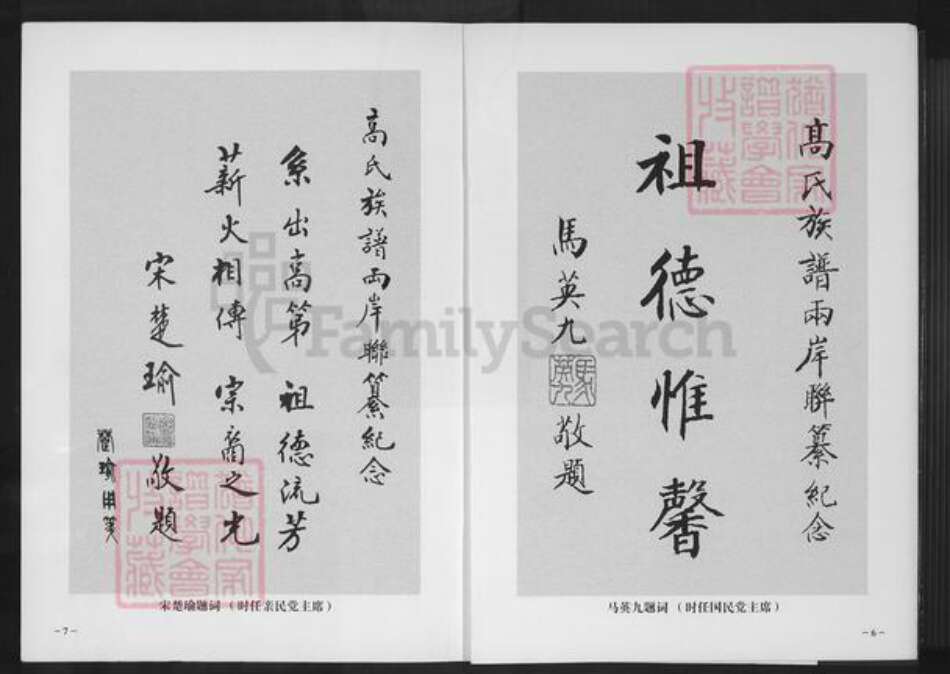 高氏族譜兩岸聯纂紀念
祖德惟馨
馬英九
敬題
马英九题词（时任国民党主席）
－6－
高氏族譜兩岸聯纂紀念
系出高第 祖德流芳
薪火相傳 宗裔之光
宋楚瑜
敬題
宋楚瑜题词（时任亲民党主席）
－7－
FamilySearch